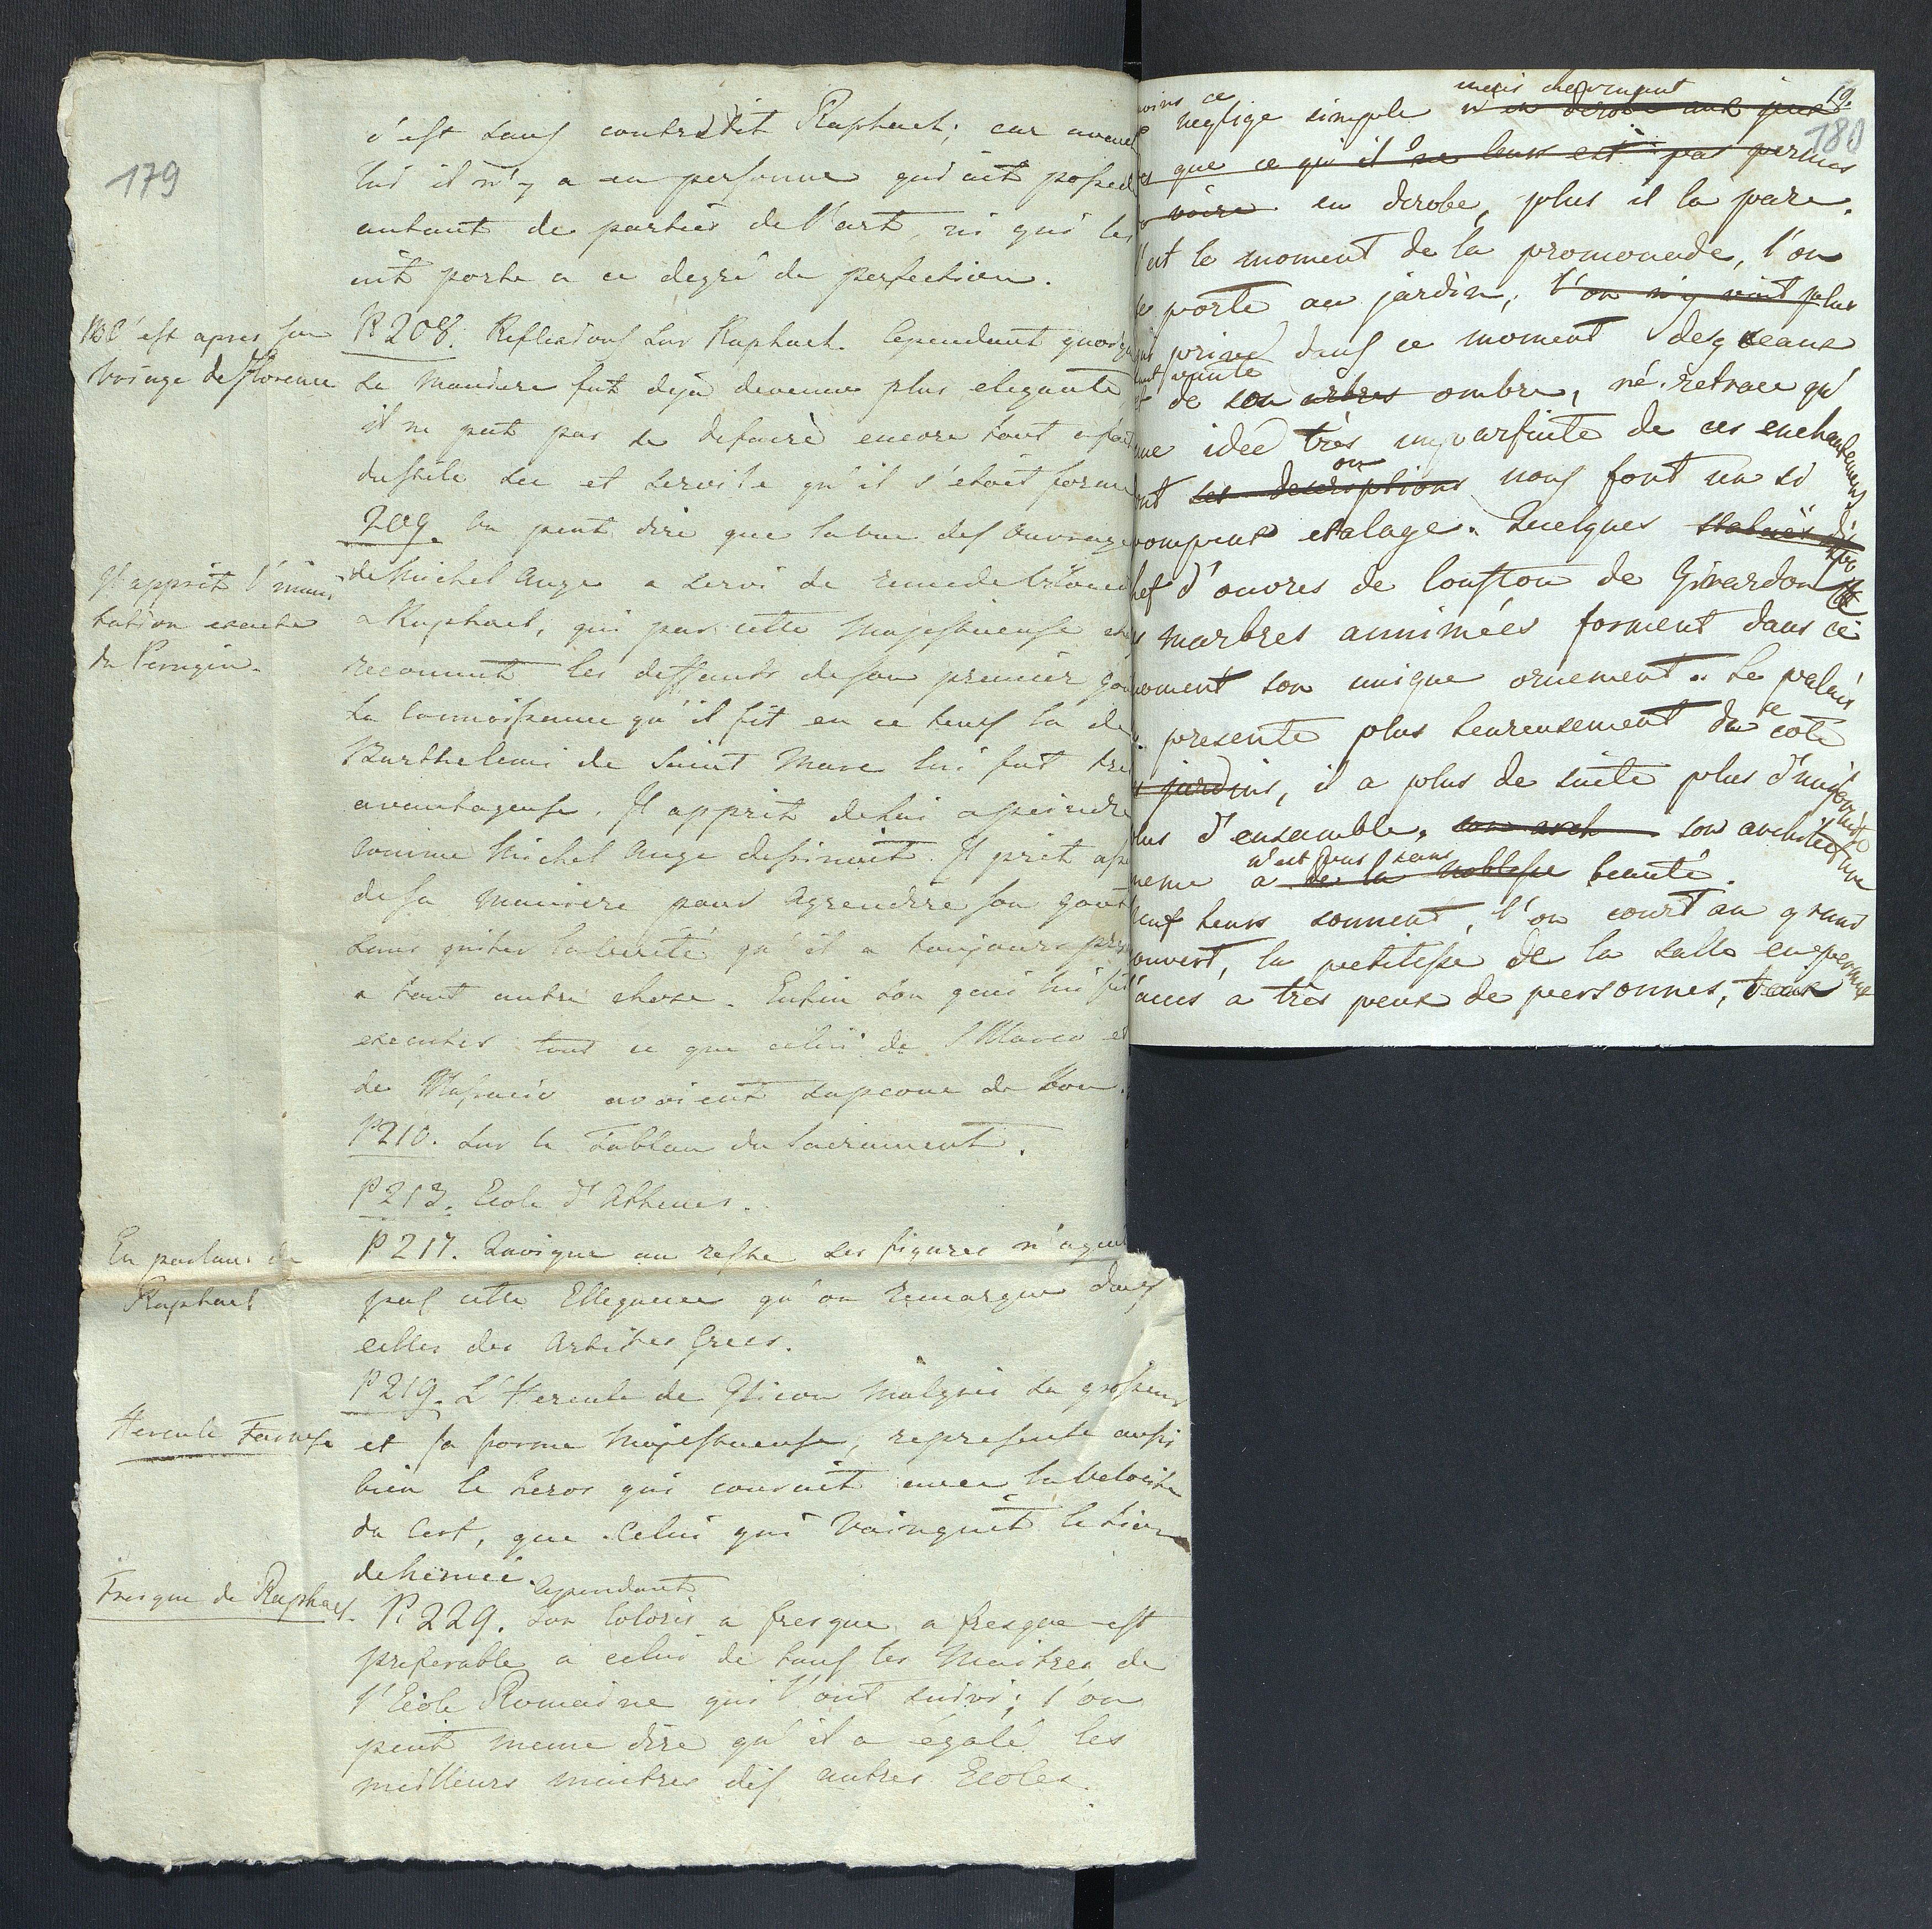 179
c'est sans contredit Raphael; car avant
lui il n'y a eu personne qui ait possed
autant de parties de l'art, ni qui les
ait porté a ce degré de perfection.
NB c'est apres son
voiage de florence
P. 208. Reflexions sur Raphael. Cependant quoiqu
sa maniere fut deja devenue plus elegante
il ne put pas se defaire encore tout a fait
du stile sec et servile qu'il s'etoit formé
209. On peut dire que la vue des ouvrages
Il apprit l'imi
tation exacte
du Perugin.
de Michel Ange a servi de remede
a Raphael, qui par cette Majestueuse
reconnut les deffauts de son premier gou
La connoissance qu'il fit en ce tems la de
Barthelemi de Saint Marc lui fut tres
avantageuse. Il apprit de lui a peindre
comme Michel Ange dessinoit. Il prit
de sa maniere pour agrendire son gout
sans quiter la verité qu'il a toujours
a tout autre chose. Enfin son genie lui fit
executer tout ce que celui de S Marco et
de Masacio avoient de bon.
P 210. Sur le Tableau du Sacrament.
P 213. Ecole d'Athenes.
En parlant de
Raphael
P 217. Quoique au reste ses figures n'ayent
pas cette Ellegance qu'on remarque dans
celles des Artistes Grecs.
P 219. L'Hercule de Glicon Malgrés sa grosseur
Hercule Farnese
et sa forme Majestueuse, represente aussi
bien le heros qui couroit avec la Velocité
du Cerf, que celui qui Vainquit le Lion
de Nemée.
Fresque de Raphael.
Cependant
P. 229. Son Coloris a fresque a fresque est
preferable a celui de tous les Maitres de
l'Ecole Romaine qui l'ont suivi; l'on
peut meme dire qu'il a égalé les
meilleurs maitres des autres Ecoles.
19.
180
ce
neglige simple n'en derobe aux yeux
que ce qu'il ne leurs est pas permis
voire en derobe, plus il la pare.
C'est le moment de la promenade, l'on
se porte au jardin, l'on n'y voit plus
privé dans ce moment des eaux
et de son arbres ombre, né retrace qu'
une idée très imparfaite de ces enchantemens
on
dont ses descriptions nous font un si
pompeux etalage. Quelques statues
chef d'ouvres de Couston de Girardon
marbres annimées forment dans ce
moment son unique ornement. Le palais
se
presente plus heureusement du coté
es jardins, il a plus de suite plus d'uniformité
plus d'ensemble. son arch son architecture
n'est pas sans
meme a de la noblesse beauté.
neuf heurs sonnent, l'on court au grand
couvert, la petitesse de la salle en permet
l'accés a très peux de personnes,